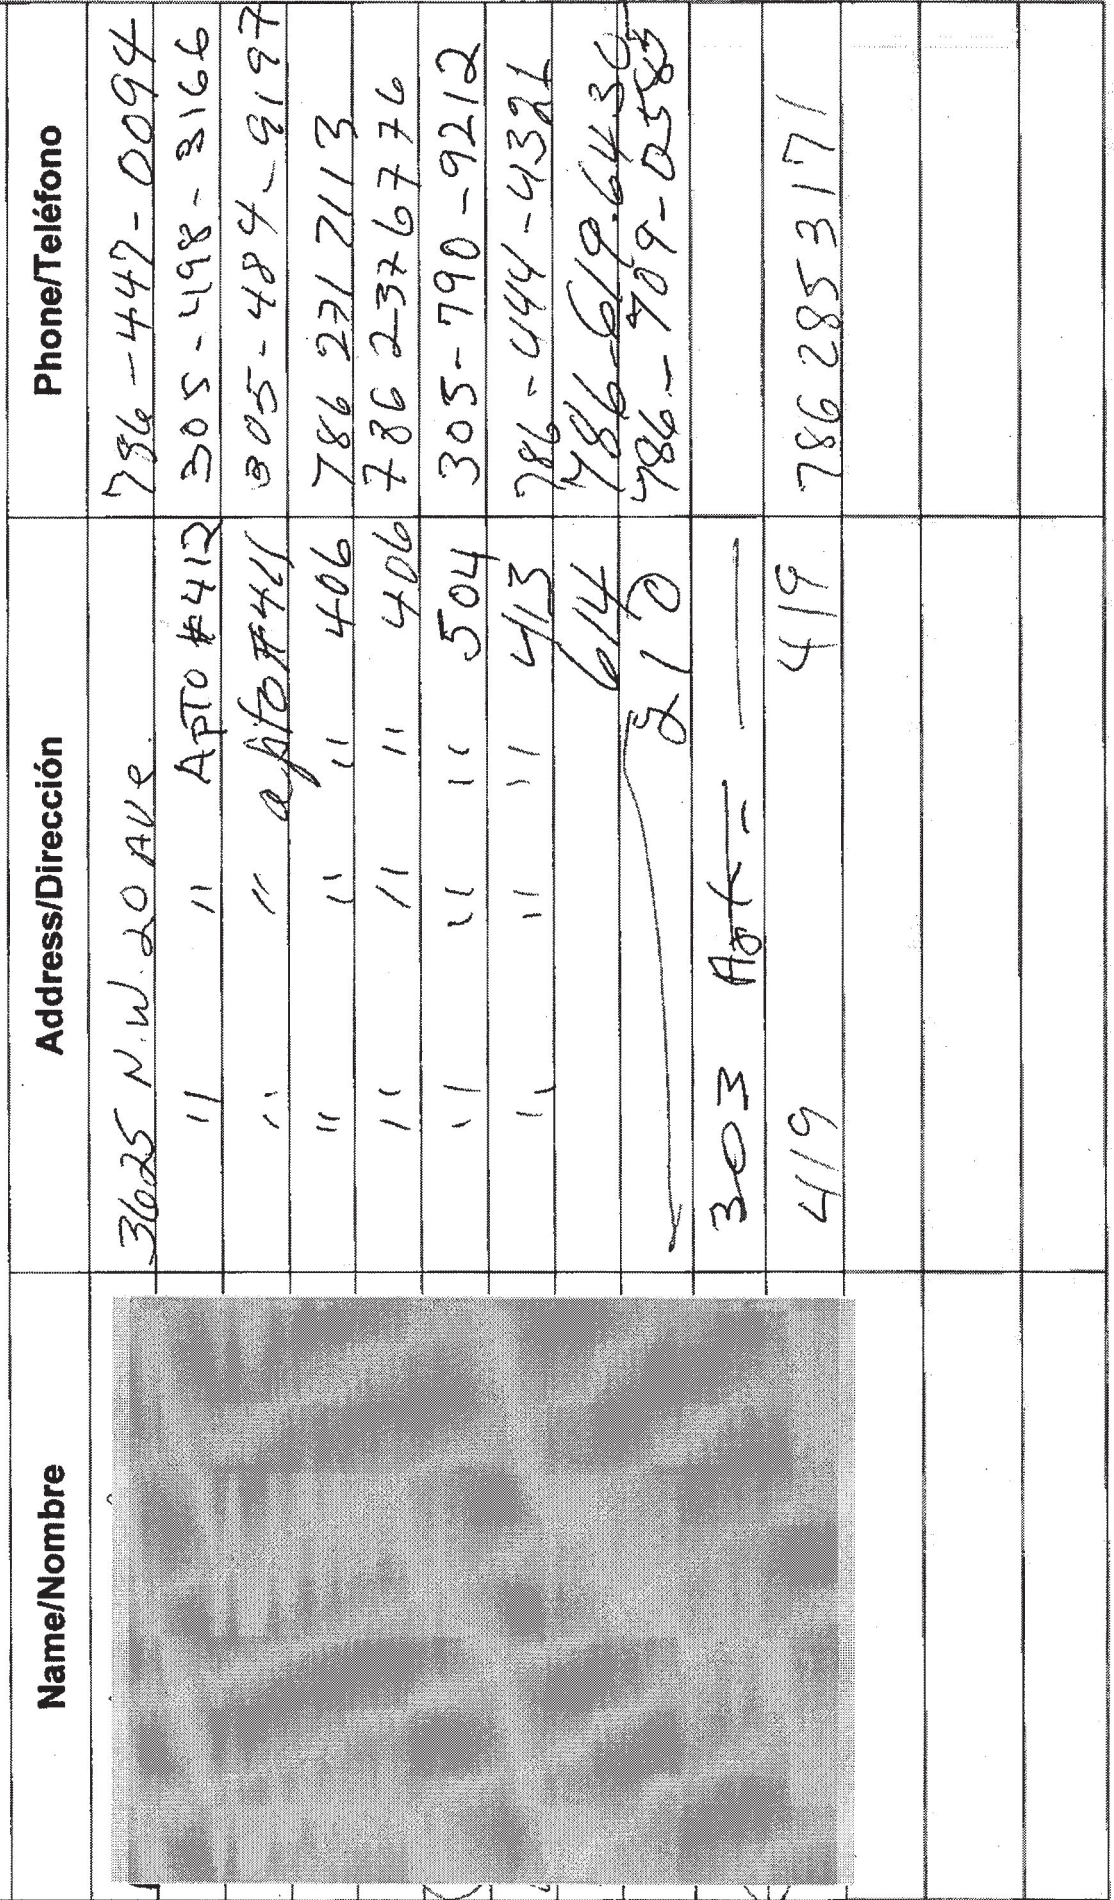 Name/Nombre Address/Dirección Phone/Teléfono
3625 N.W. 20 AVe. 786-447-0094
" " APTO #412 305-498-3166
" " apto #411 305-484-9197
" " " 406 786 271 7113
" " " 406 786 237 6776
" " " 504 305-790-9212
" " " 413 786-444-4321
614 786-619-6430
510 786-709-0585
303 Apt -
419 419 786 285 3171